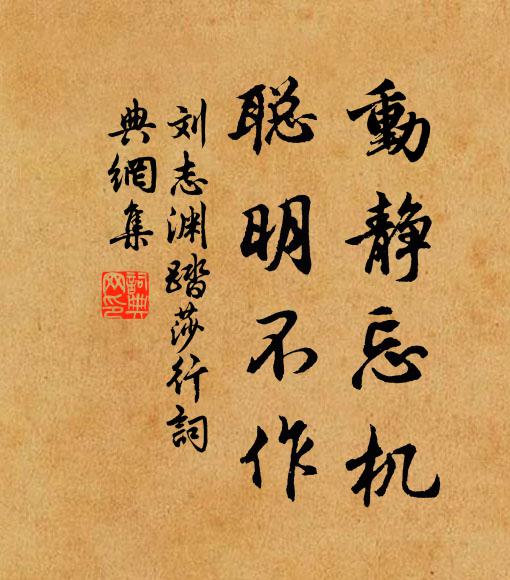 動静忘机
聪明不作
刘志渊踏莎行詞
典網集
詞典网印